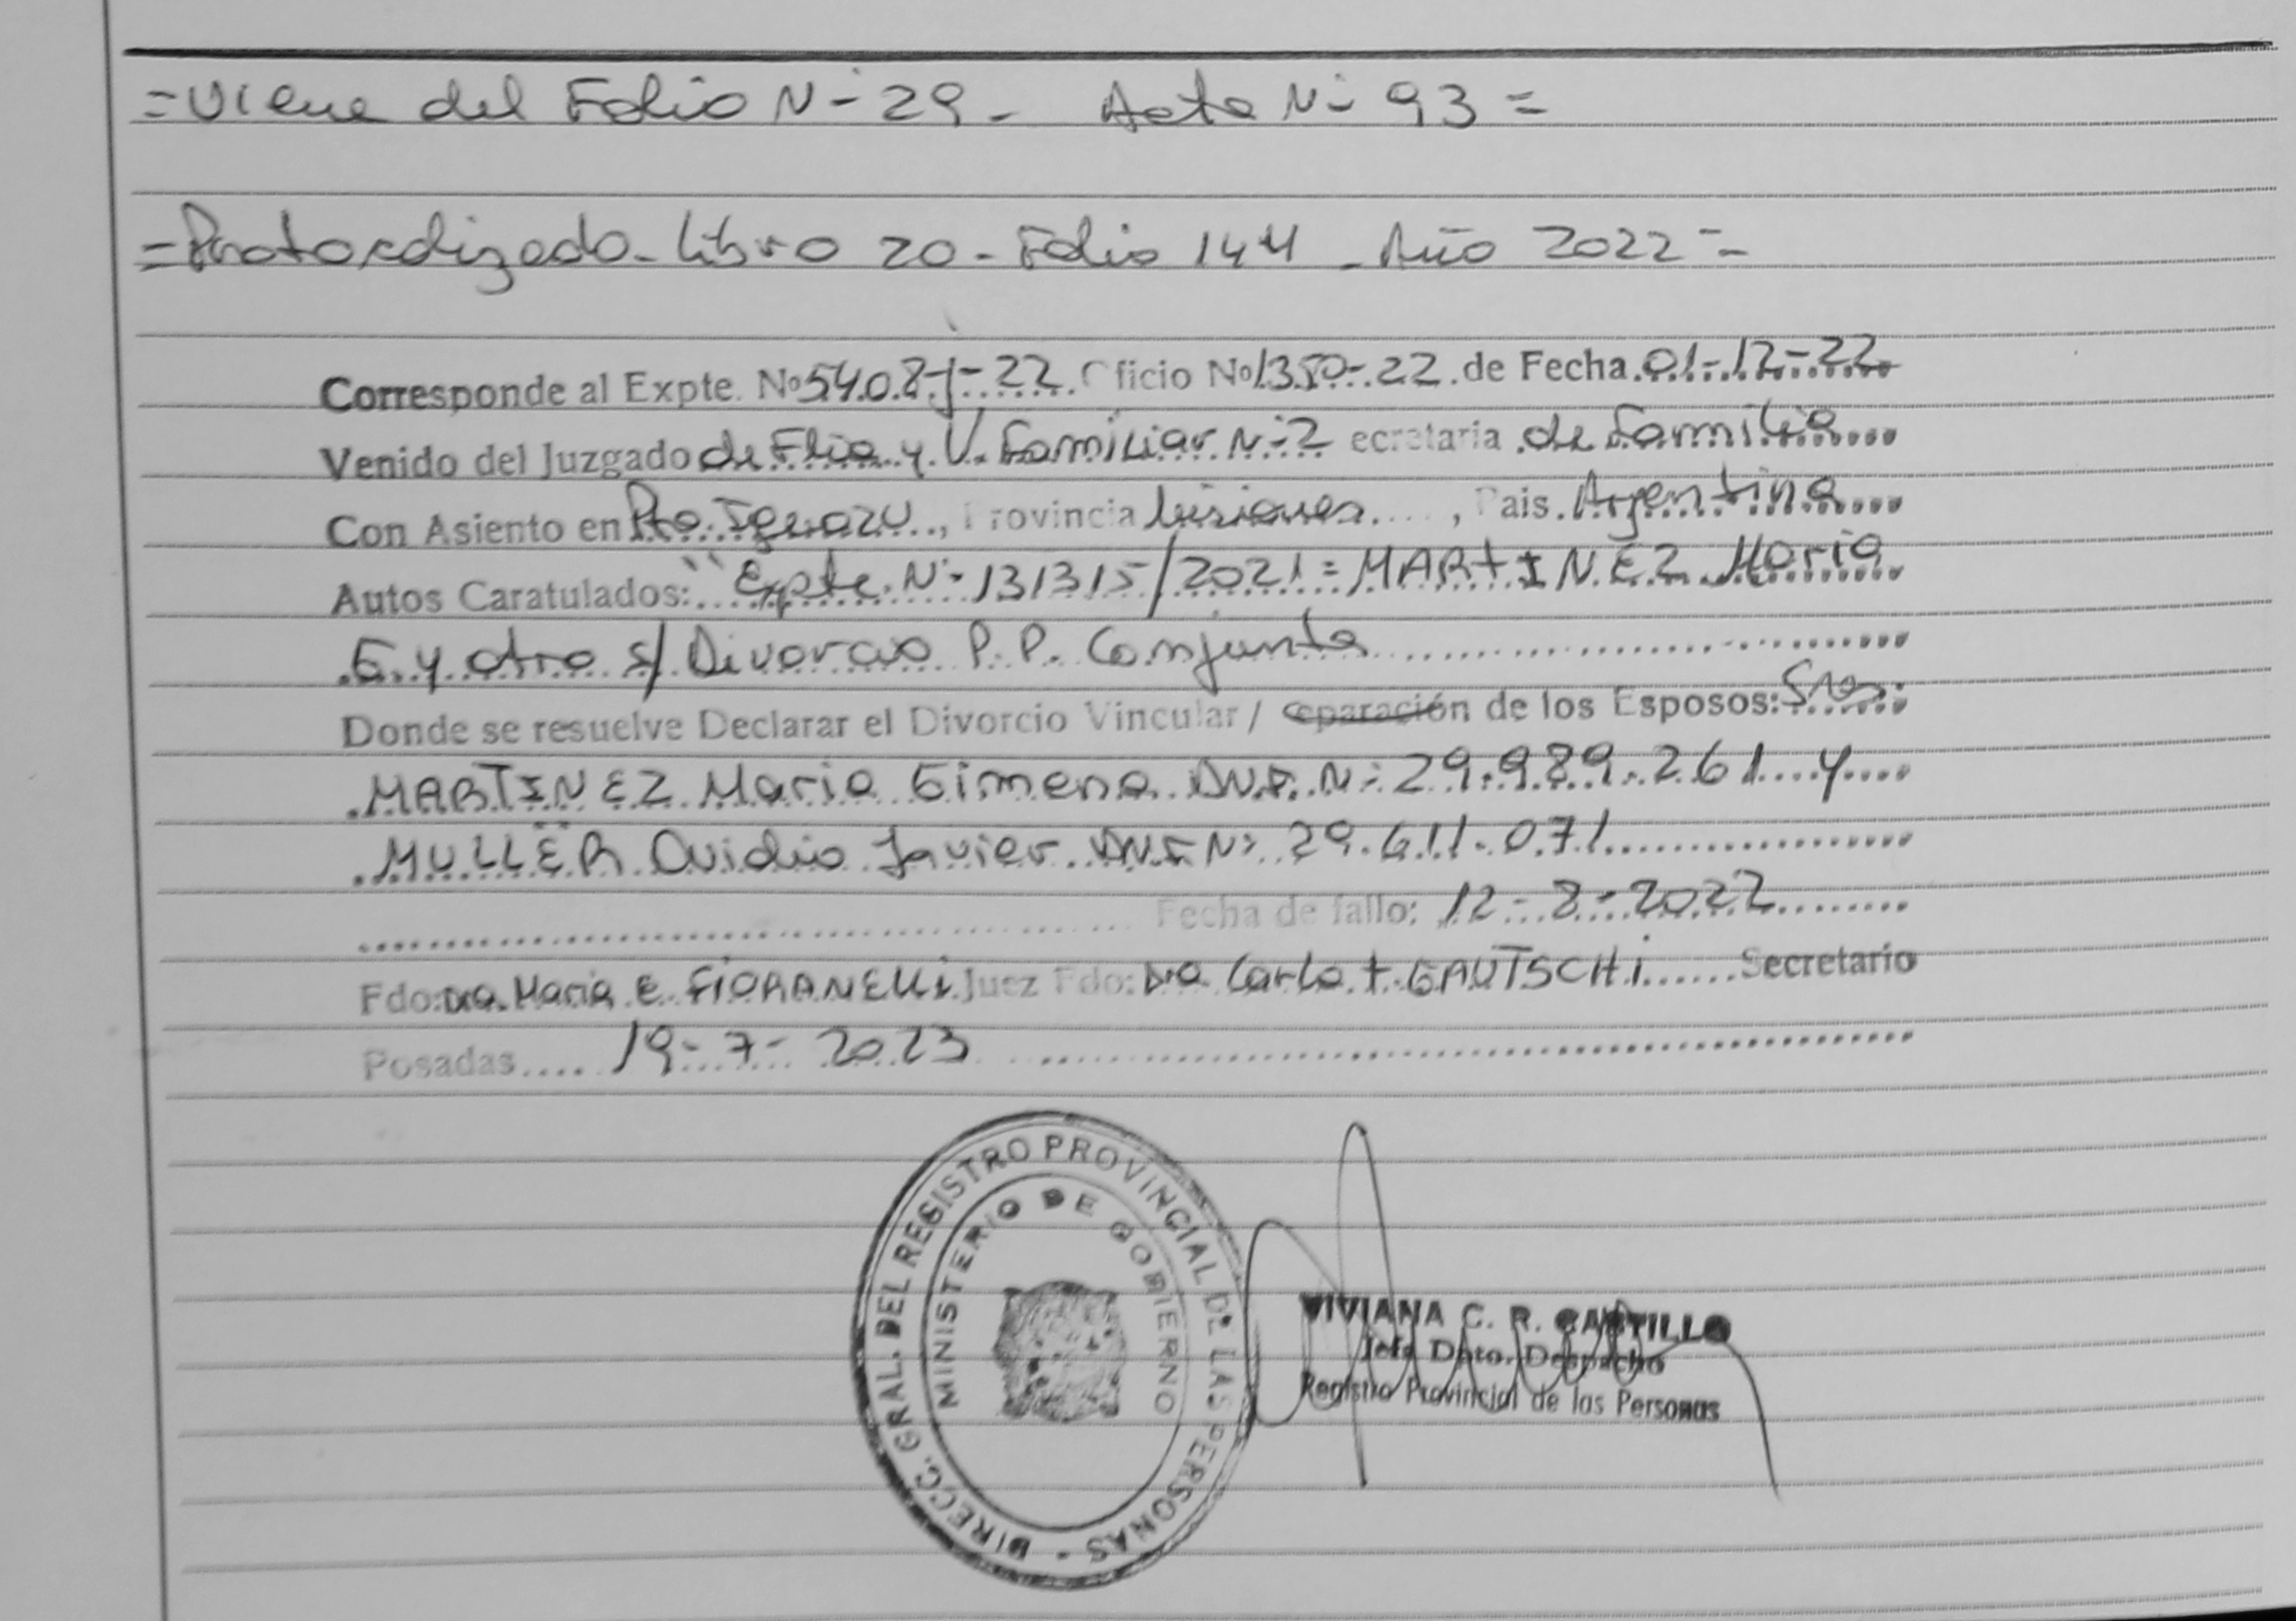 =Viene del Folio Nº 29 - Acta Nº 93=
=Protocolizado - Libro 20 - Folio 144 - Año 2022=
Corresponde al Expte. Nº 5408-J-22. Oficio Nº 1350-22 de Fecha 01-12-22
Venido del Juzgado de Flia y V. Familiar Nº 2 ecretaria de Familia
Con Asiento en Pto. Iguazu, Provincia Misiones, Pais. Argentina
Autos Caratulados: "Expte Nº 131315/2021 = MARTINEZ Maria
G. y otro s/ Divorcio P.P. Conjunta
Donde se resuelve Declarar el Divorcio Vincular / eparación de los Esposos: Sres:
MARTINEZ Maria Gimena D.N.I. Nº 29.989.261 y
MULLER Ovidio Javier DNI Nº 29.611.071
Fecha de fallo: 12-8-2022
Fdo: Dra. Maria E. FIORANELLI Juez Fdo: Dra Carla + GAUTSCHI Secretario
Posadas 19-7-2023
DIRECC. GRAL. DEL REGISTRO PROVINCIAL DE LAS PERSONAS -
MINISTERIO DE GOBIERNO
VIVIANA C. R. CASTILLO
Jefa Dpto. Despacho
Registro Provincial de las Personas